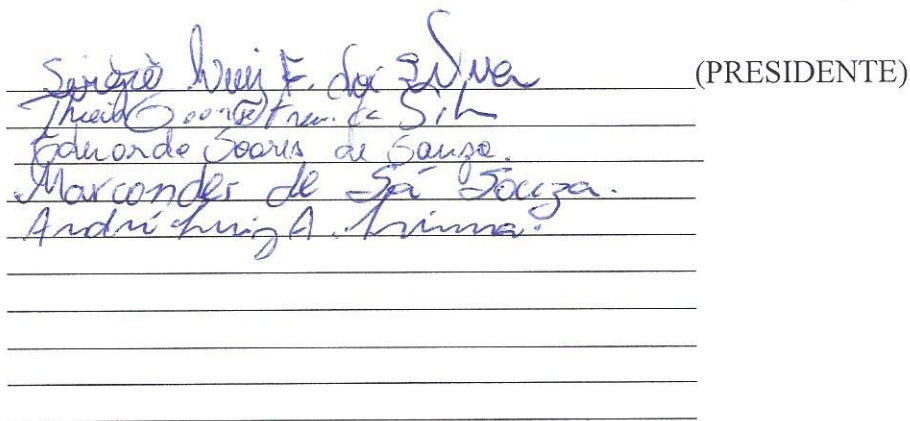 Luiz F. da Silva (PRESIDENTE)
da Sil
Eduardo Soares de Souza.
Marcondes de Sá Souza.
André Luiz A. Lima.